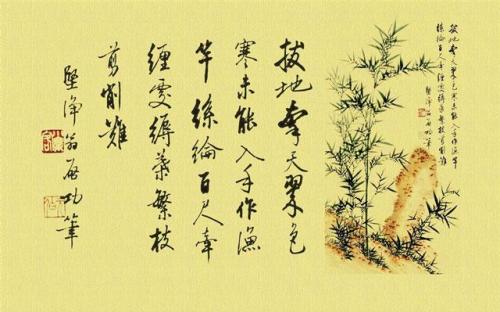 拔地參天翠色
寒未能入手作漁
竿絲綸百尺牽
纏處縟葉繁枝
剪削難
堅淨翁啟功筆
拔地參天翠色寒未能入手作漁竿
絲綸百尺牽纏處縟葉繁枝剪削難
堅淨翁啟功筆